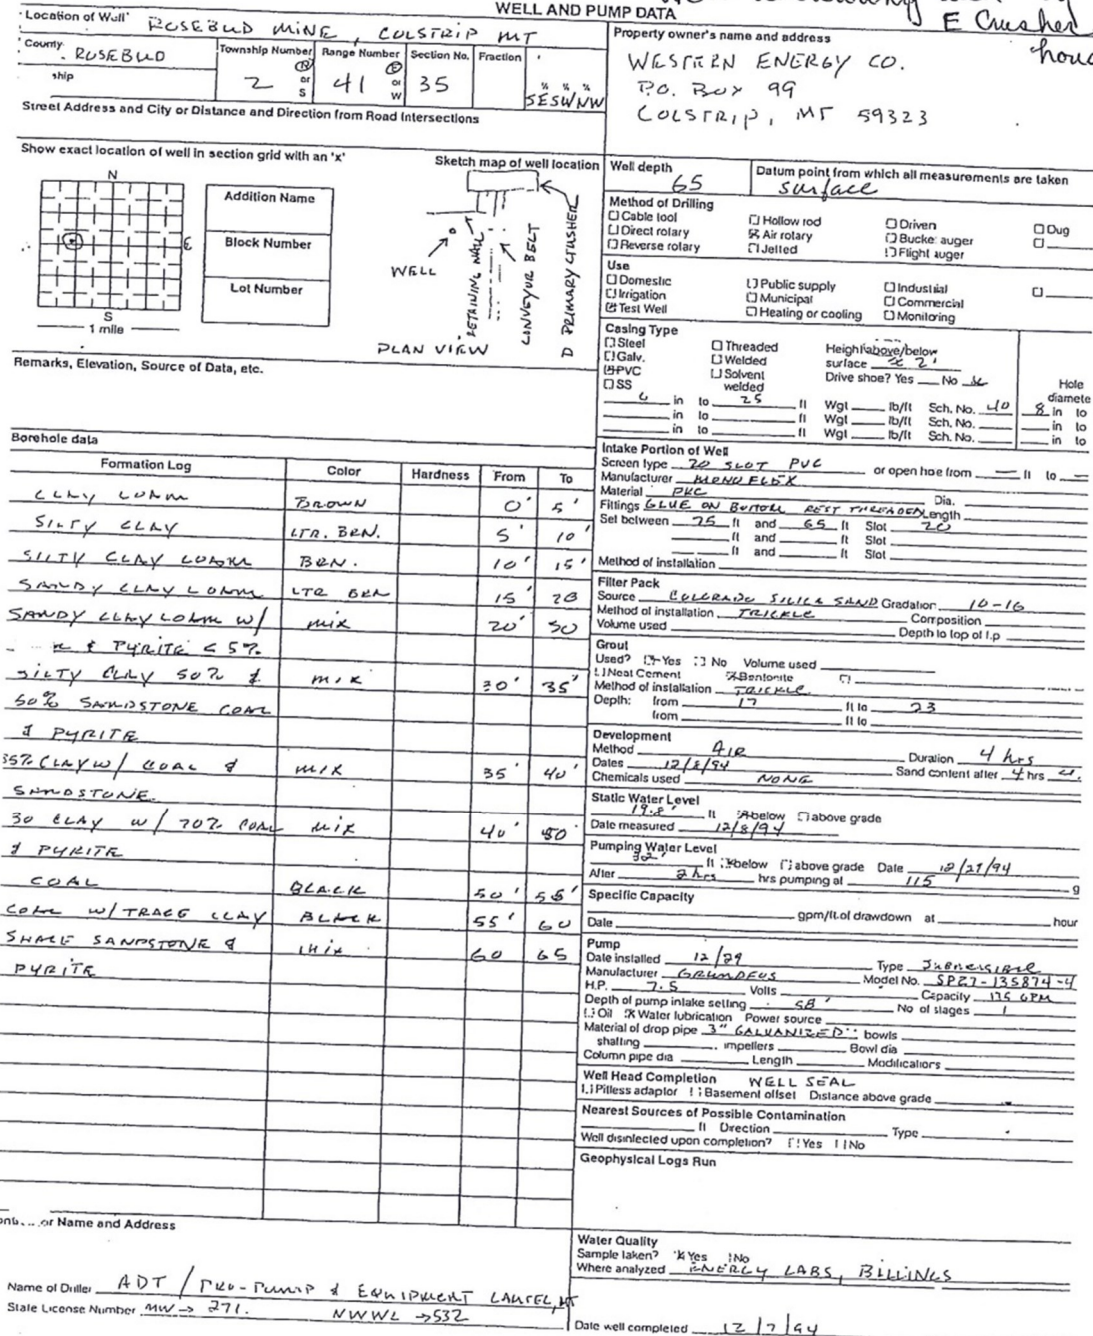 WELL AND PUMP DATA
E Crusher
Location of Well
ROSEBUD MINE, COLSTRIP MT
County
ROSEBUD
ship
Township Number
2
N or S
Range Number
41
E or W
Section No.
35
Fraction
¼ ¼ ¼
SESWNW
Street Address and City or Distance and Direction from Road Intersections
Property owner's name and address
WESTERN ENERGY CO.
P.O. Box 99
COLSTRIP, MT 59323
Show exact location of well in section grid with an 'x'
N
E
S
1 mile
Addition Name
Block Number
Lot Number
Sketch map of well location
WELL
RETAINING WALL
CONVEYOR BELT
D PRIMARY CRUSHER
PLAN VIEW
Remarks, Elevation, Source of Data, etc.
Borehole data
Formation Log Color Hardness From To
CLAY LOAM BROWN 0' 5'
SILTY CLAY LTR. BRN. 5' 10'
SILTY CLAY LOAM BRN. 10' 15'
SANDY CLAY LOAM LTR BRN 15' 20
SANDY CLAY LOAM W/ MIX 20'
& PYRITE < 5%
SILTY CLAY 50% & MIX 30' 35'
50% SANDSTONE COAL
& PYRITE
35% CLAY W/ COAL & MIX 35' 40'
SANDSTONE
30 CLAY W/ 70% COAL MIX 40' 50'
& PYRITE
COAL BLACK 50' 55'
COAL W/TRACE CLAY BLACK 55' 60
SHALE SANDSTONE & MIX 60 65
PYRITE
or Name and Address
Name of Driller ADT / PRO-PUMP & EQUIPMENT LAUREL, MT
State License Number MW → 271. NWWL → 532
Well depth
65
Datum point from which all measurements are taken
surface
Method of Drilling
Cable tool Hollow rod Driven Dug
Direct rotary Air rotary Bucket auger
Reverse rotary Jetted Flight auger
Use
Domestic Public supply Industrial
Irrigation Municipal Commercial
Test Well Heating or cooling Monitoring
Casing Type
Steel Threaded Height above/below
Galv. Welded surface 2'
PVC Solvent welded Drive shoe? Yes No
SS
Hole diamete
6 in to 25 ft Wgt lb/ft Sch. No. 40 8 in to
in to ft Wgt lb/ft Sch. No. in to
in to ft Wgt lb/ft Sch. No. in to
Intake Portion of Well
Screen type 20 SLOT PVC or open hole from ft to
Manufacturer MONOFLEX
Material PVC Dia.
Fittings GLUE ON BOTTOM REST THREADED Length
Set between 25 ft and 65 ft Slot 20
ft and ft Slot
ft and ft Slot
Method of installation
Filter Pack
Source COLORADO SILICA SAND Gradation 10-16
Method of installation TRICKLE Composition
Volume used Depth to top of f.p
Grout
Used? Yes No Volume used
Neat Cement Bentonite
Method of installation TRICKLE
Depth: from 17 ft to 23
from ft to
Development
Method AIR Duration 4 hrs
Dates 12/8/94 Sand content after 4 hrs
Chemicals used NONE
Static Water Level
19.8' ft below above grade
Date measured 12/8/94
Pumping Water Level
32' ft below above grade Date 12/29/94
After 2 hrs hrs pumping at 115 g
Specific Capacity
gpm/ft.of drawdown at hour
Date
Pump
Date installed 12/29 Type SUBMERSIBLE
Manufacturer GRUNDFOS Model No. SP27-135874-4
H.P. 7.5 Volts Capacity 175 GPM
Depth of pump intake setting 58' No of stages 1
Oil Water lubrication Power source
Material of drop pipe 3" GALVANIZED bowls
shafting impellers Bowl dia
Column pipe dia Length Modifications
Well Head Completion WELL SEAL
Pitless adaptor Basement offset Distance above grade
Nearest Sources of Possible Contamination
ft Direction Type
Well disinfected upon completion? Yes No
Geophysical Logs Run
Water Quality
Sample taken? Yes No
Where analyzed ENERGY LABS, BILLINGS
Date well completed 12/7/94